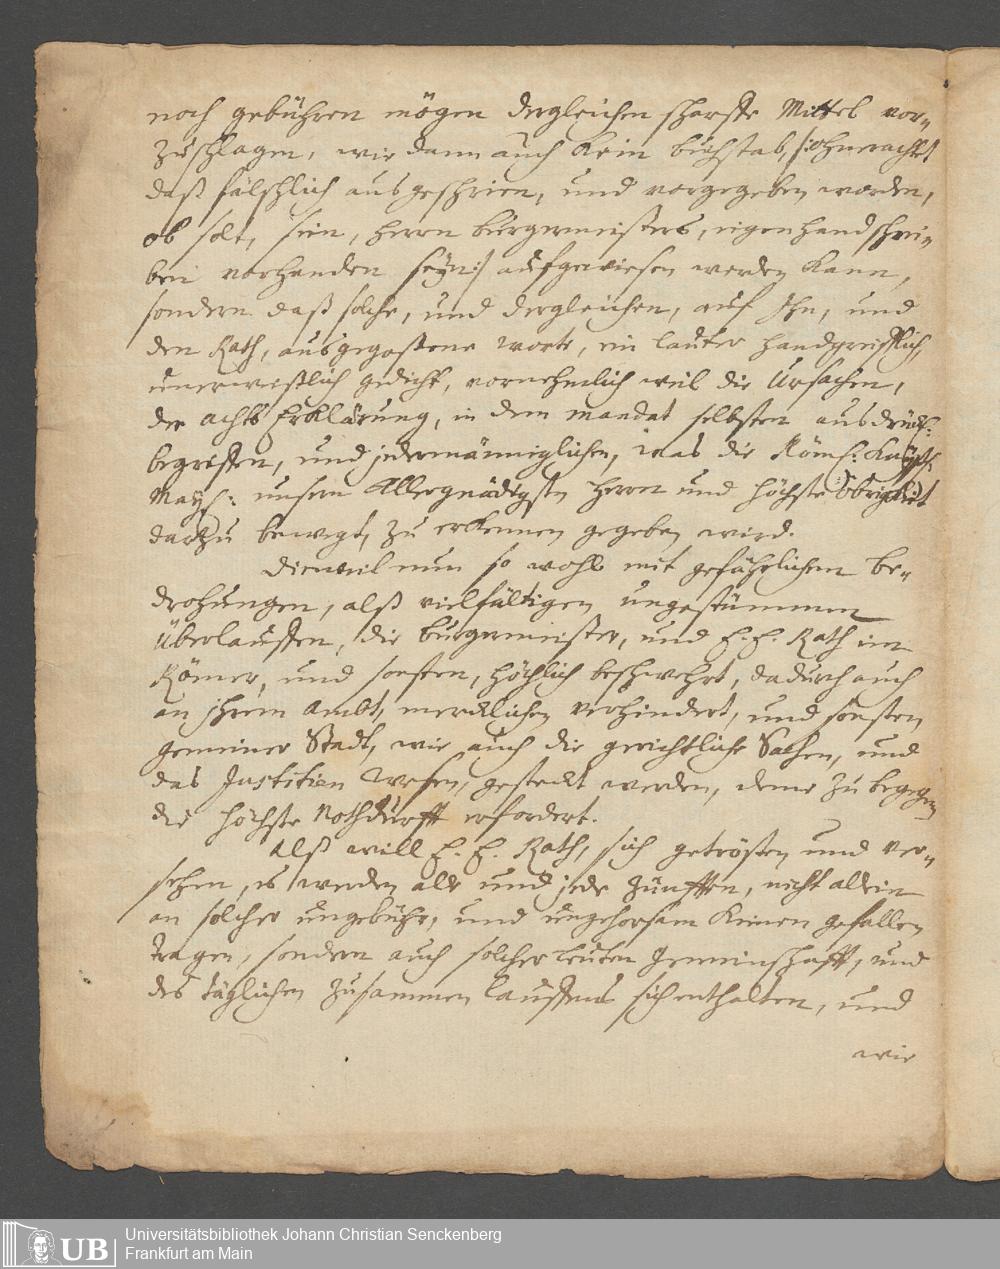 noch gebühren mögen dergleichen scharffe Mittel vor-
zuschlagen, wie dann auch kein buchstab, /: ohnerachtet
daß fälschlich ausgeschrien, und vorgegeben worden,
ob solt, sein, herrn burgermeisters, eigen hand schrei-
ben vorhanden seyn :/ aufgewiesen werden kann,
sondern daß solche, und dergleichen, auf Ihn, und
den Rath, ausgegossene worte, ein lauter handgreifflich,
unerweißlich gedicht, vornehmlich weil die Ursachen,
der achts Erklärung, in dem mandat selbsten ausdrückl:
begriffen, und jedermänniglichen, was die Röm: Kayß:
May: unsern Allergnädigsten herrn und höchste Obrigkeit
darzu bewegt, zu erkennen gegeben wird.
Dieweil nun so wohl mit gefährlichen be-
drohungen, alß vielfältigen ungestümmen
Überlauffen, die burgermeister, und E. E. Rath im
Römer, und sonsten, höchlich beschwehrt, dadurch auch
an ihrem Ambt, mercklichen verhindert, und sonsten
gemeiner Stadt, wie auch die gerichtliche Sachen, und
das Justitien Wesen, gesteckt werden, deme zu begegen
die höchste Nothdurfft erfordert.
Alß will E. E. Rath, sich getrösten und ver-
sehen, es werden alle und jede Zünfften, nicht allein
an solcher ungebühr, und ungehorsam keinen gefallen
tragen, sondern auch solcher leuten Gemeinschafft, und
des täglichen Zusammen lauffens sich enthalten, und
wie
Universitätsbibliothek Johann Christian Senckenberg
UB Frankfurt am Main